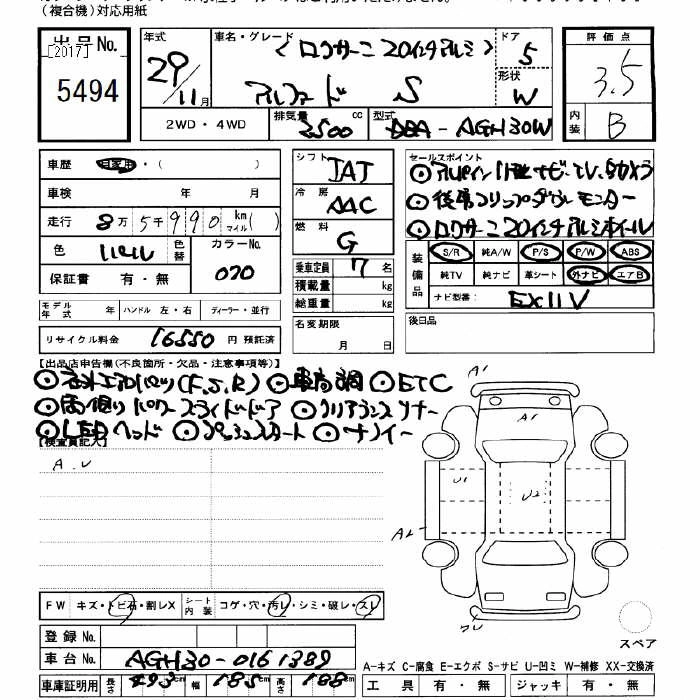 (複合機)対応用紙
出品No.
[2017]
5494
年式 29/11月
車名・グレード (ロクサーニ 20インチアルミ)
アルファード S
ドア 5
形状 W
2WD・4WD
排気量 3500 cc
型式 DBA-AGH30W
評価点 3.5
内装 B
車歴 自家用・( )
車検 年 月
走行 8万5千990 km マイル( )
色 パール 色替 カラーNo. 070
保証書 有・無
シフト IAT
冷房 AAC
燃料 G
乗車定員 7名
積載量 kg
総重量 kg
名変期限 月 日
セールスポイント
◎アルパイン11型ナビ・TV・Bカメラ
◎後席フリップダウンモニター
◎ロクサーニ20インチアルミホイール
装備品 S/R 純A/W P/S P/W ABS
純TV 純ナビ 革シート 外ナビ エアB
ナビ型番: EX11V
後日品
モデル年式 年 ハンドル 左・右 ディーラー・並行
リサイクル料金 16550 円 預託済
【出品店申告欄(不良箇所・欠品・注意事項等)】
(F,S,R) ◎車高調 ◎ETC
◎両側パワースライドドア ◎クリアランスソナー
◎LEDヘッド ◎プッシュスタート ◎ナノイー
【検査員記入】
A.U
A1
A1
U1
U2
A2
FW キズ・トビ石・割レX シート内装 コゲ・穴・汚レ・シミ・破レ・スレ
登録No.
車台No. AGH30-0161389
車庫証明用 長さ 493cm 幅 185cm 高さ 188cm
スペア
A-キズ C-腐食 E-エクボ S-サビ U-凹ミ W-補修 XX-交換済
工具 有・無 ジャッキ 有・無